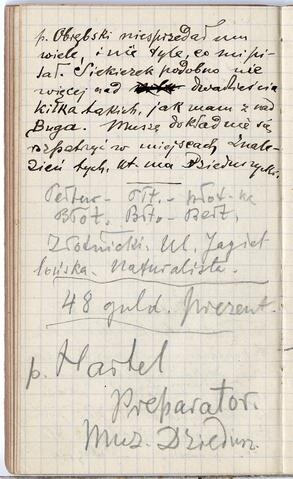 p. Obrębski niesprzedał mu
wiele, i nie tyle, co mi pi
sał. Siekierek podobno nie
więcej nad dwadzieścia
kilka takich, jak mam z nad
Buga. Muszę dokładnie się
rozpatrzyć w miejscach znale-
zień tych, kt ma Dzieduszycki.
Błot.
Złotnicki. Ul. Jagiel
lońska. Naturalista.
48 guld. Prezent.
p. Hartel
Preparator.
Muz. Dziedusz.